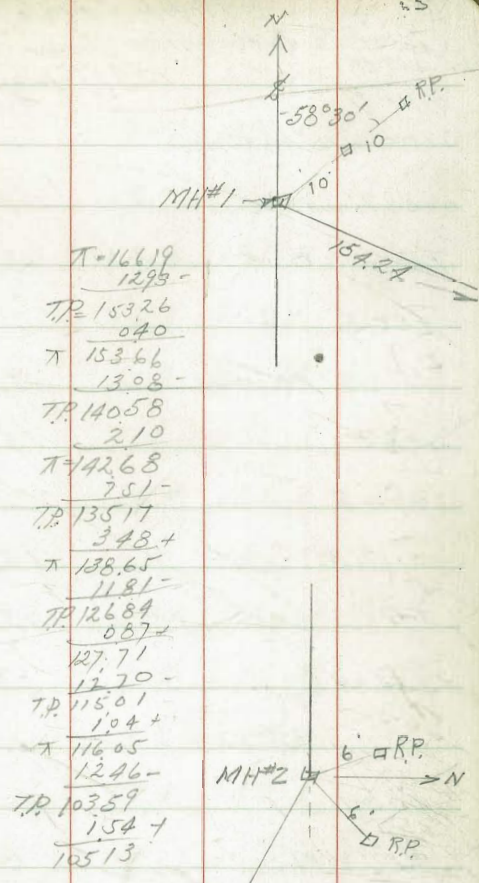 N
R.P.
58°30'
10
10'
MH#1
154.24
π = 166 19
12 93 -
T.P. = 153.26
0 40
π 153 66
13 08 -
T.P. 140 58
2 10
π = 142 68
7 51 -
T.P. 135 17
3 48 +
π 138.65
11 81 -
T.P. 126 84
0 87 +
127.71
12 70 -
T.P. 115 01
1 04 +
π 116 05
12 46 -
T.P. 103 59
1 54 +
105 13
6' R.P.
MH#2 N
6'
R.P.